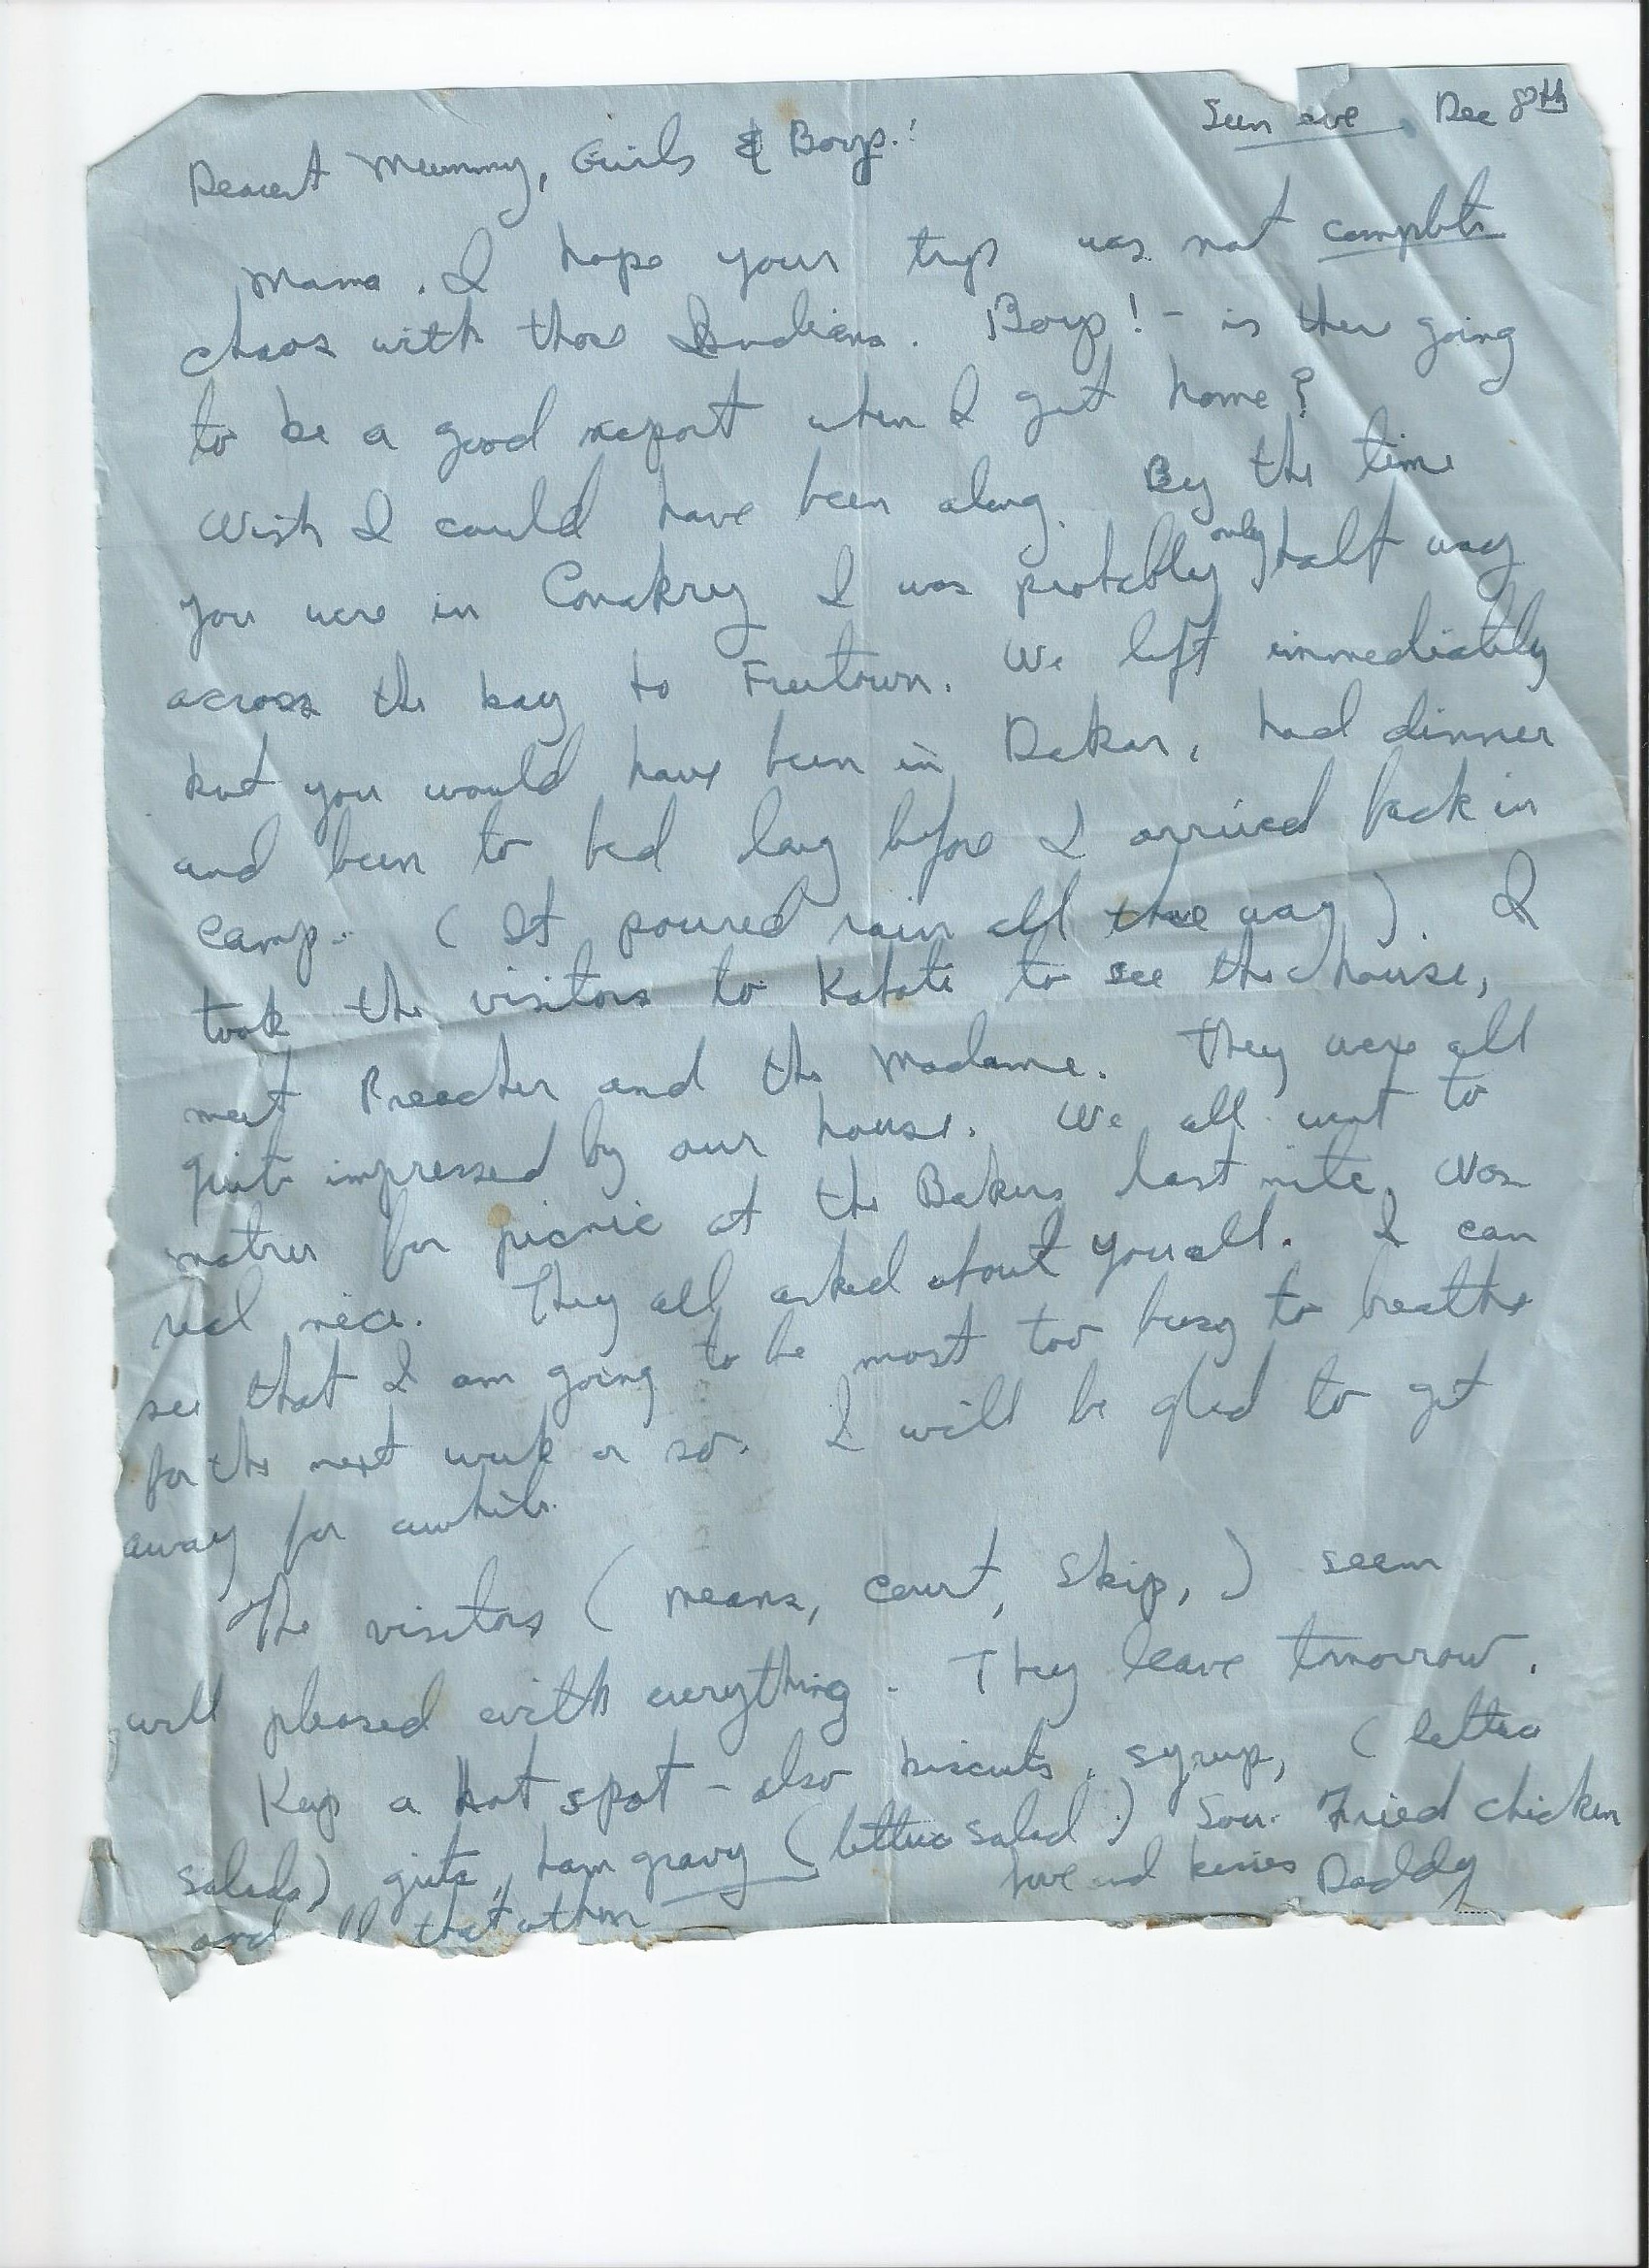 Sun eve, Dec 8th
Dearest Mummy, Girls & Boys!
Mama, I hope your trip was not complete
chaos with those Indians. Boys! - is there going
to be a good report when I get home?
Wish I could have been along. By the time
you were in Conakry I was probably only half way
across the bay to Freetown. We left immediately
but you would have been in Dakar, had dinner
and been to bed long before I arrived back in
camp. (It poured rain all the way) I
took the visitors to Kabati to see the house,
meet Preacher and the Madame. They were all
quite impressed by our house. We all went to
for picnic at the Bakers last nite. Was
real nice. They all asked about you all. I can
see that I am going to be most too busy to breathe
for the next week or so. I will be glad to get
away for awhile.
The visitors (Means, Court, Skip,) seem
well pleased with everything. They leave tomorrow.
Keep a hot spot - also biscuits, syrup, (lettuce
salads) grits, ham gravy (lettuce salad) Sou. Fried chicken
and all that other
love and kisses Daddy